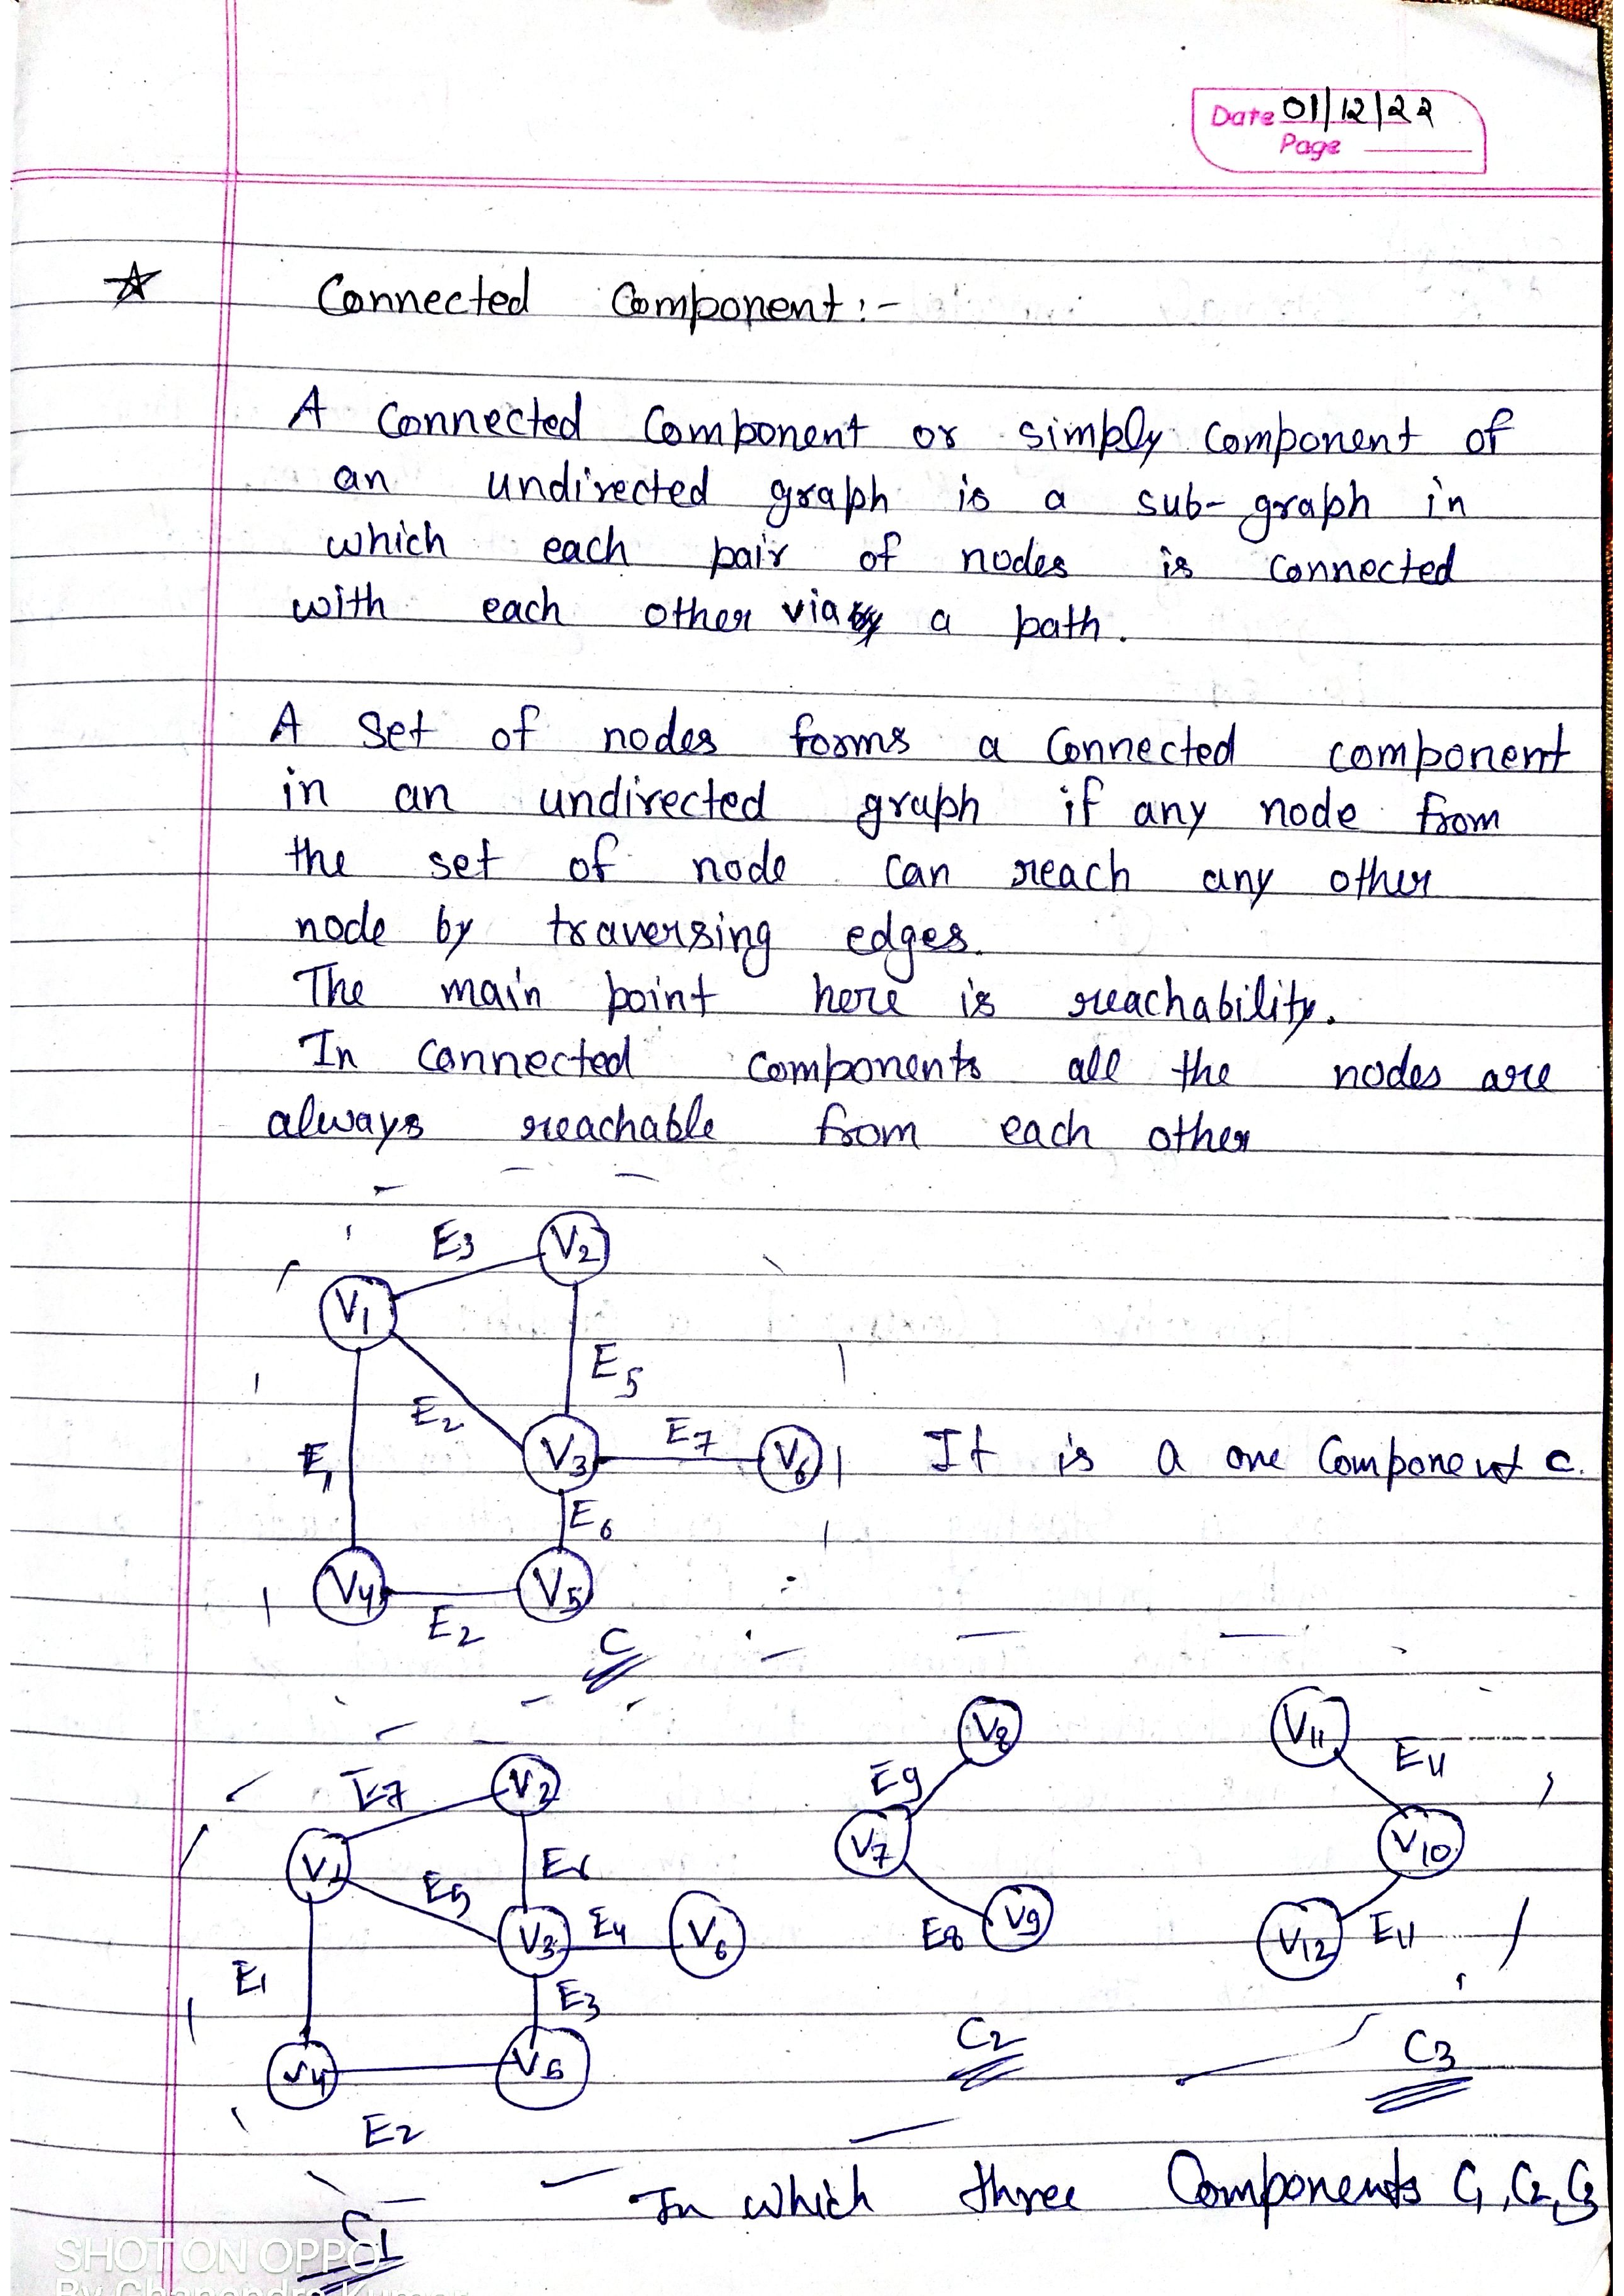 Date 01/12/22
Page
☆ Connected Component:-
A Connected Component or simply component of
an undirected graph is a sub-graph in
which each pair of nodes is connected
with each other via a path.
A set of nodes forms a connected component
in an undirected graph if any node from
the set of node can reach any other
node by traversing edges.
The main point here is reachability.
In connected components all the nodes are
always reachable from each other
E3 V2
V1
E5
E2
E1 V3 E7 V6 It is a one Component c.
E6
V4 V5
E2 C
V8 V11
E7 V2 E9 E11
V1 V7 V10
E5 E6
V3 E4 V6 E8 V9 V12 E11
E1 E3
V4 V5 C2 C3
E2
In which three Components C1, C2, C3
C1
SHOT ON OPPO